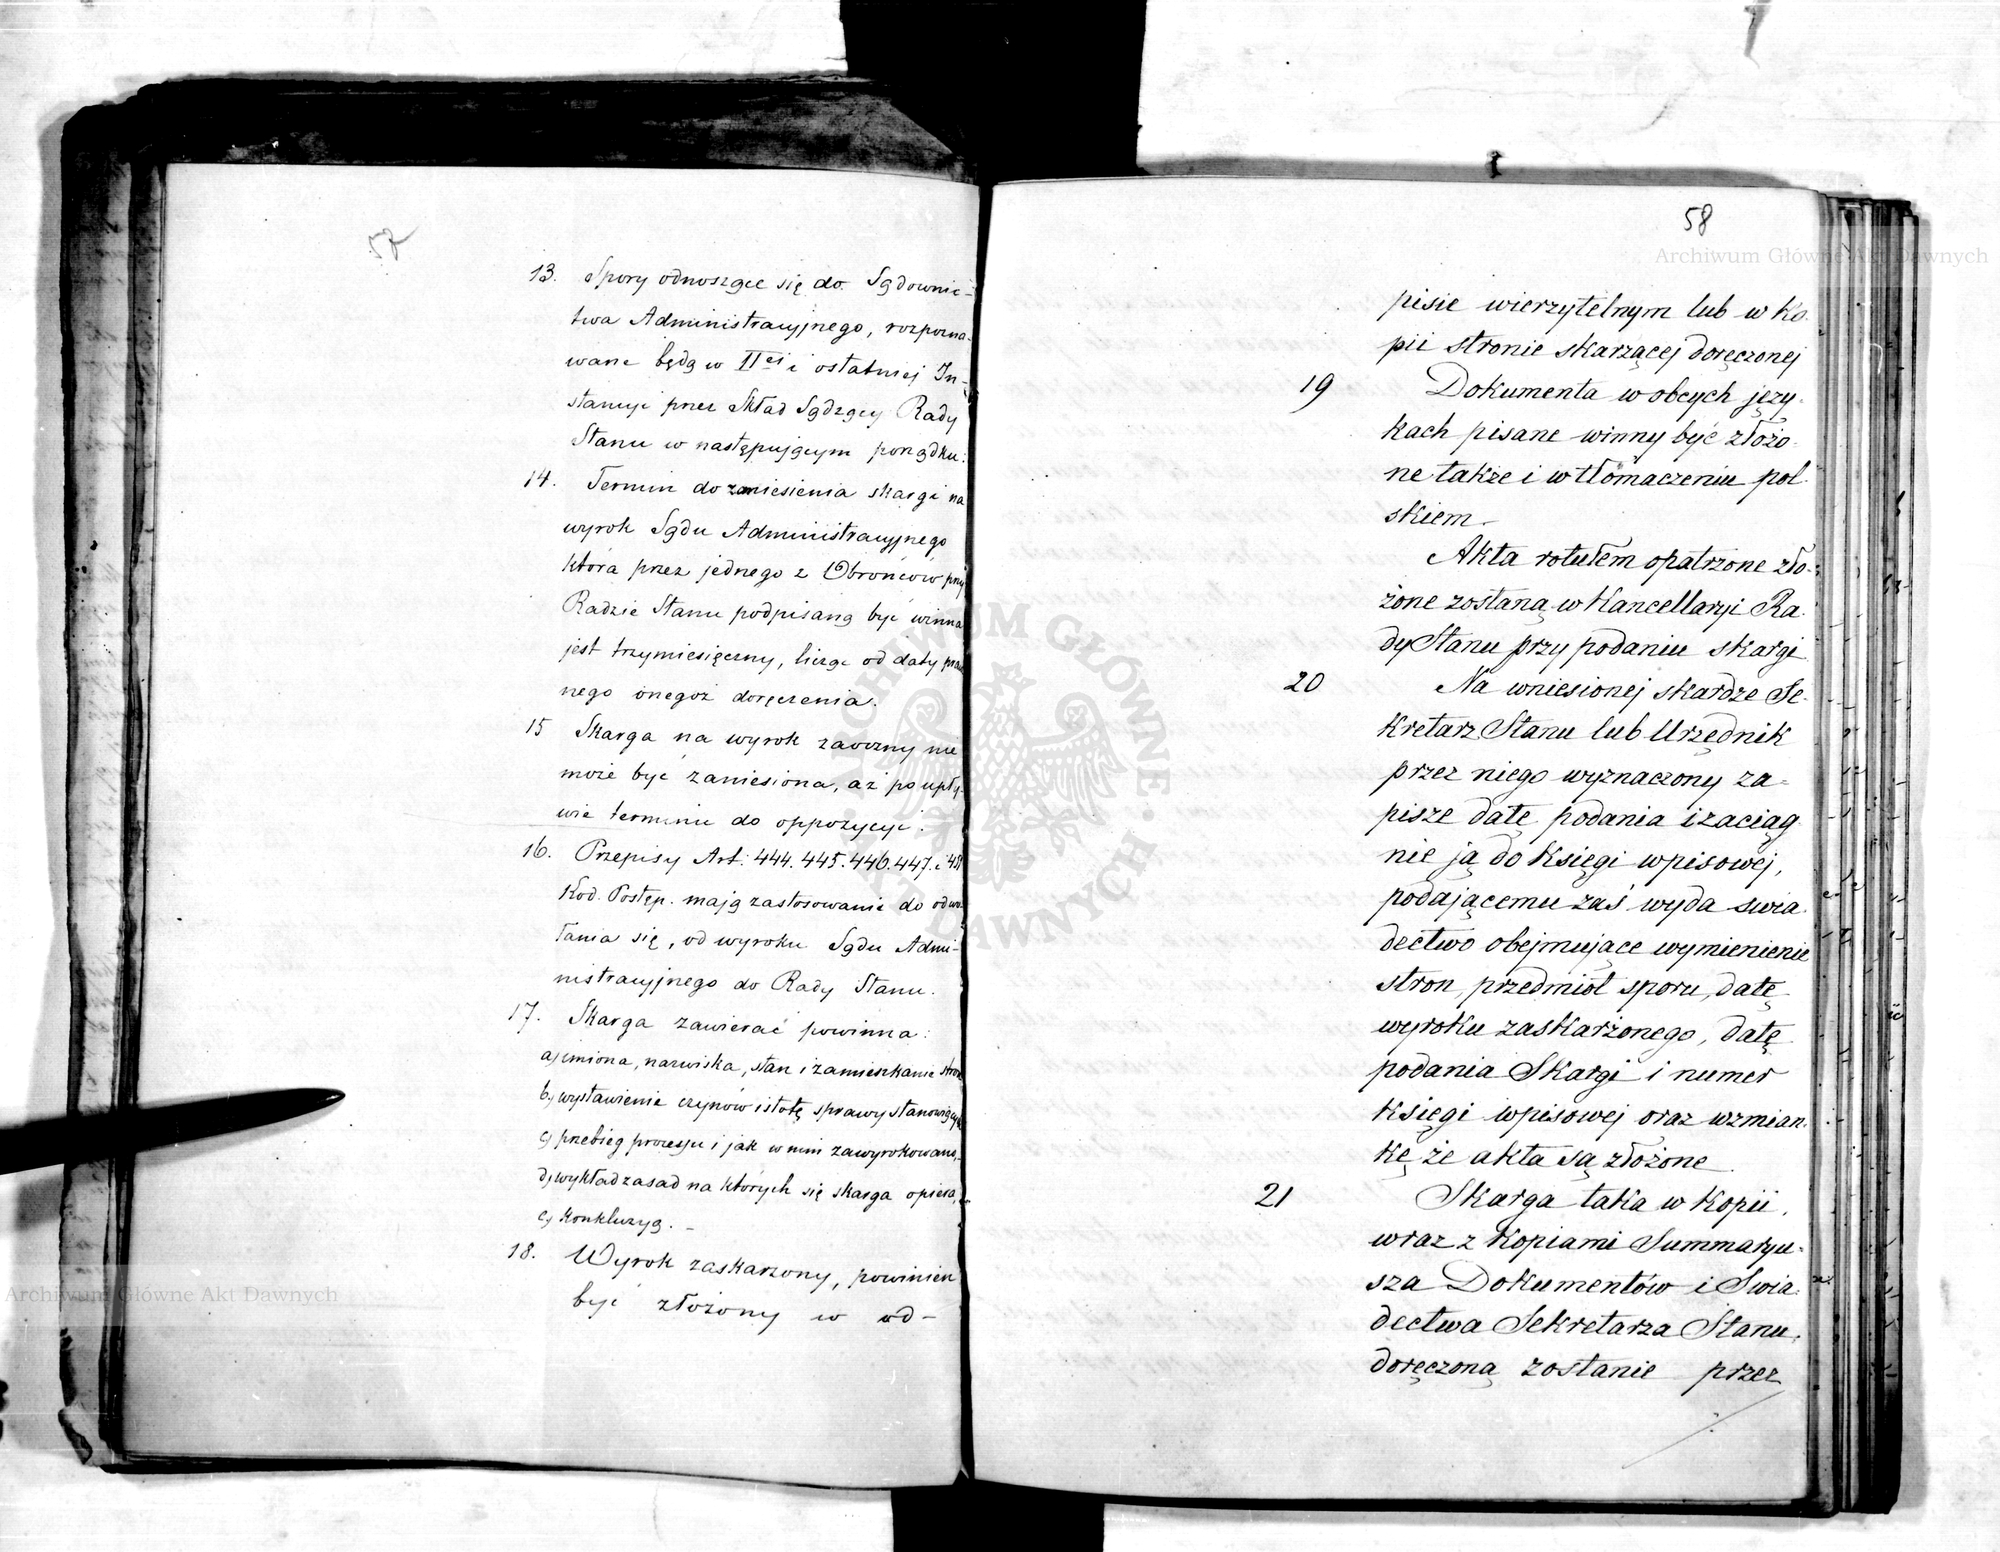 57
13. Spory odnoszące się do Sądownic-
twa Administracyjnego, rozpozna-
wane będą w IIej i ostatniej In-
stancyi przez Skład Sądzący Rady
Stanu w następującym porządku:
14. Termin do zaniesienia skargi na
wyrok Sądu Administracyjnego
która przez jednego z Obrońców przy
Radzie Stanu podpisaną być winna
jest trzymiesięczny, licząc od daty praw
nego onegoż doręczenia.
15 Skarga na wyrok zaoczny nie
może być zaniesiona, aż po upły-
wie terminu do oppozycyi.
16. Przepisy Art: 444. 445. 446. 447. i
Kod. Postęp. mają zastosowanie do odwo-
łania się, od wyroku Sądu Admi-
nistracyjnego do Rady Stanu.
17. Skarga zawierać powinna:
a) imiona, nazwiska, stan i zamieszkanie stron
b) wystawienie czynów istotę sprawy stanowiących
c) przebieg processu i jak w nim zawyrokowano,
d) wykład zasad na których się skarga opiera,
e) konkluzyą. -
18. Wyrok zaskarżony, powinien
być złożony w od-
58
pisie wierzytelnym lub w Ko-
pii stronie skarzącej doręczonej
19 Dokumenta w obcych języ-
kach pisane winny być złożo-
ne także i w tłómaczeniu pol-
skiem -
Akta rotułem opatrzone zło-
żone zostaną w Kancellaryi Ra-
dy Stanu przy podaniu skargi
20 Na wniesionej skardze Se-
kretarz Stanu lub Urzędnik
przez niego wyznaczony za-
pisze datę podania i zaciąg-
nie ją do Księgi wpisowej,
podającemu zaś wyda swia-
dectwo obejmujące wymienienie
stron, przedmiot sporu, datę
wyroku zaskarżonego, datę
podania Skargi i numer
księgi wpisowej oraz wzmian-
kę że akta są złożone.
21 Skarga taka w Kopii,
wraz z Kopiami Summaryu-
sza Dokumentów i Swia-
dectwa Sekretarza Stanu,
doręczoną zostanie przez
Archiwum Główne Akt Dawnych
Archiwum Główne Akt Dawnych
ARCHIWUM GŁÓWNE AKT DAWNYCH